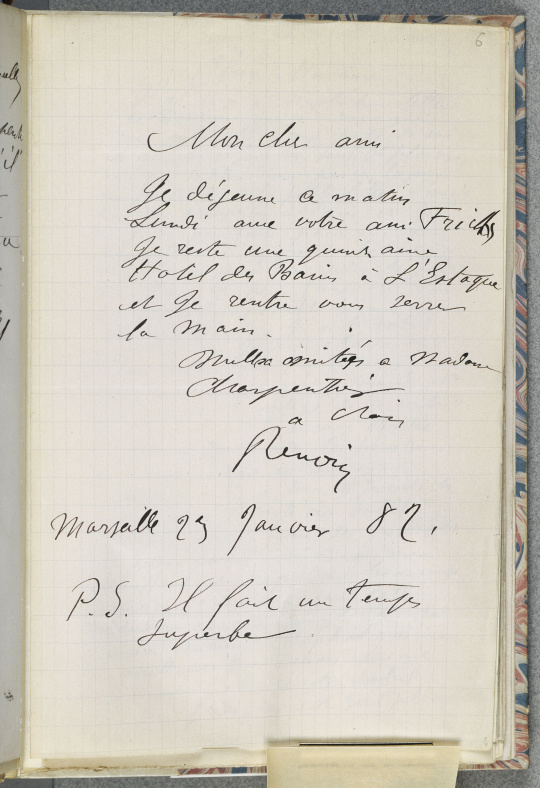 6
Mon cher ami
Je déjeune ce matin
Lundi avec votre ami
Je reste une quinzaine
Hotel des Bains à L'Estaque
et Je rentre vous serrer
la main.
mille amitiés a Madame
Charpentier
a
Renoir
Marseille 23 Janvier 82.
P.S. Il fait un temps
superbe